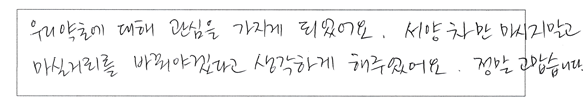 우리약초에 대해 관심을 가지게 되었어요. 서양차만 마시지말고
마실거리를 바꿔야겠다고 생각하게 해주었어요. 정말 고맙습니다.